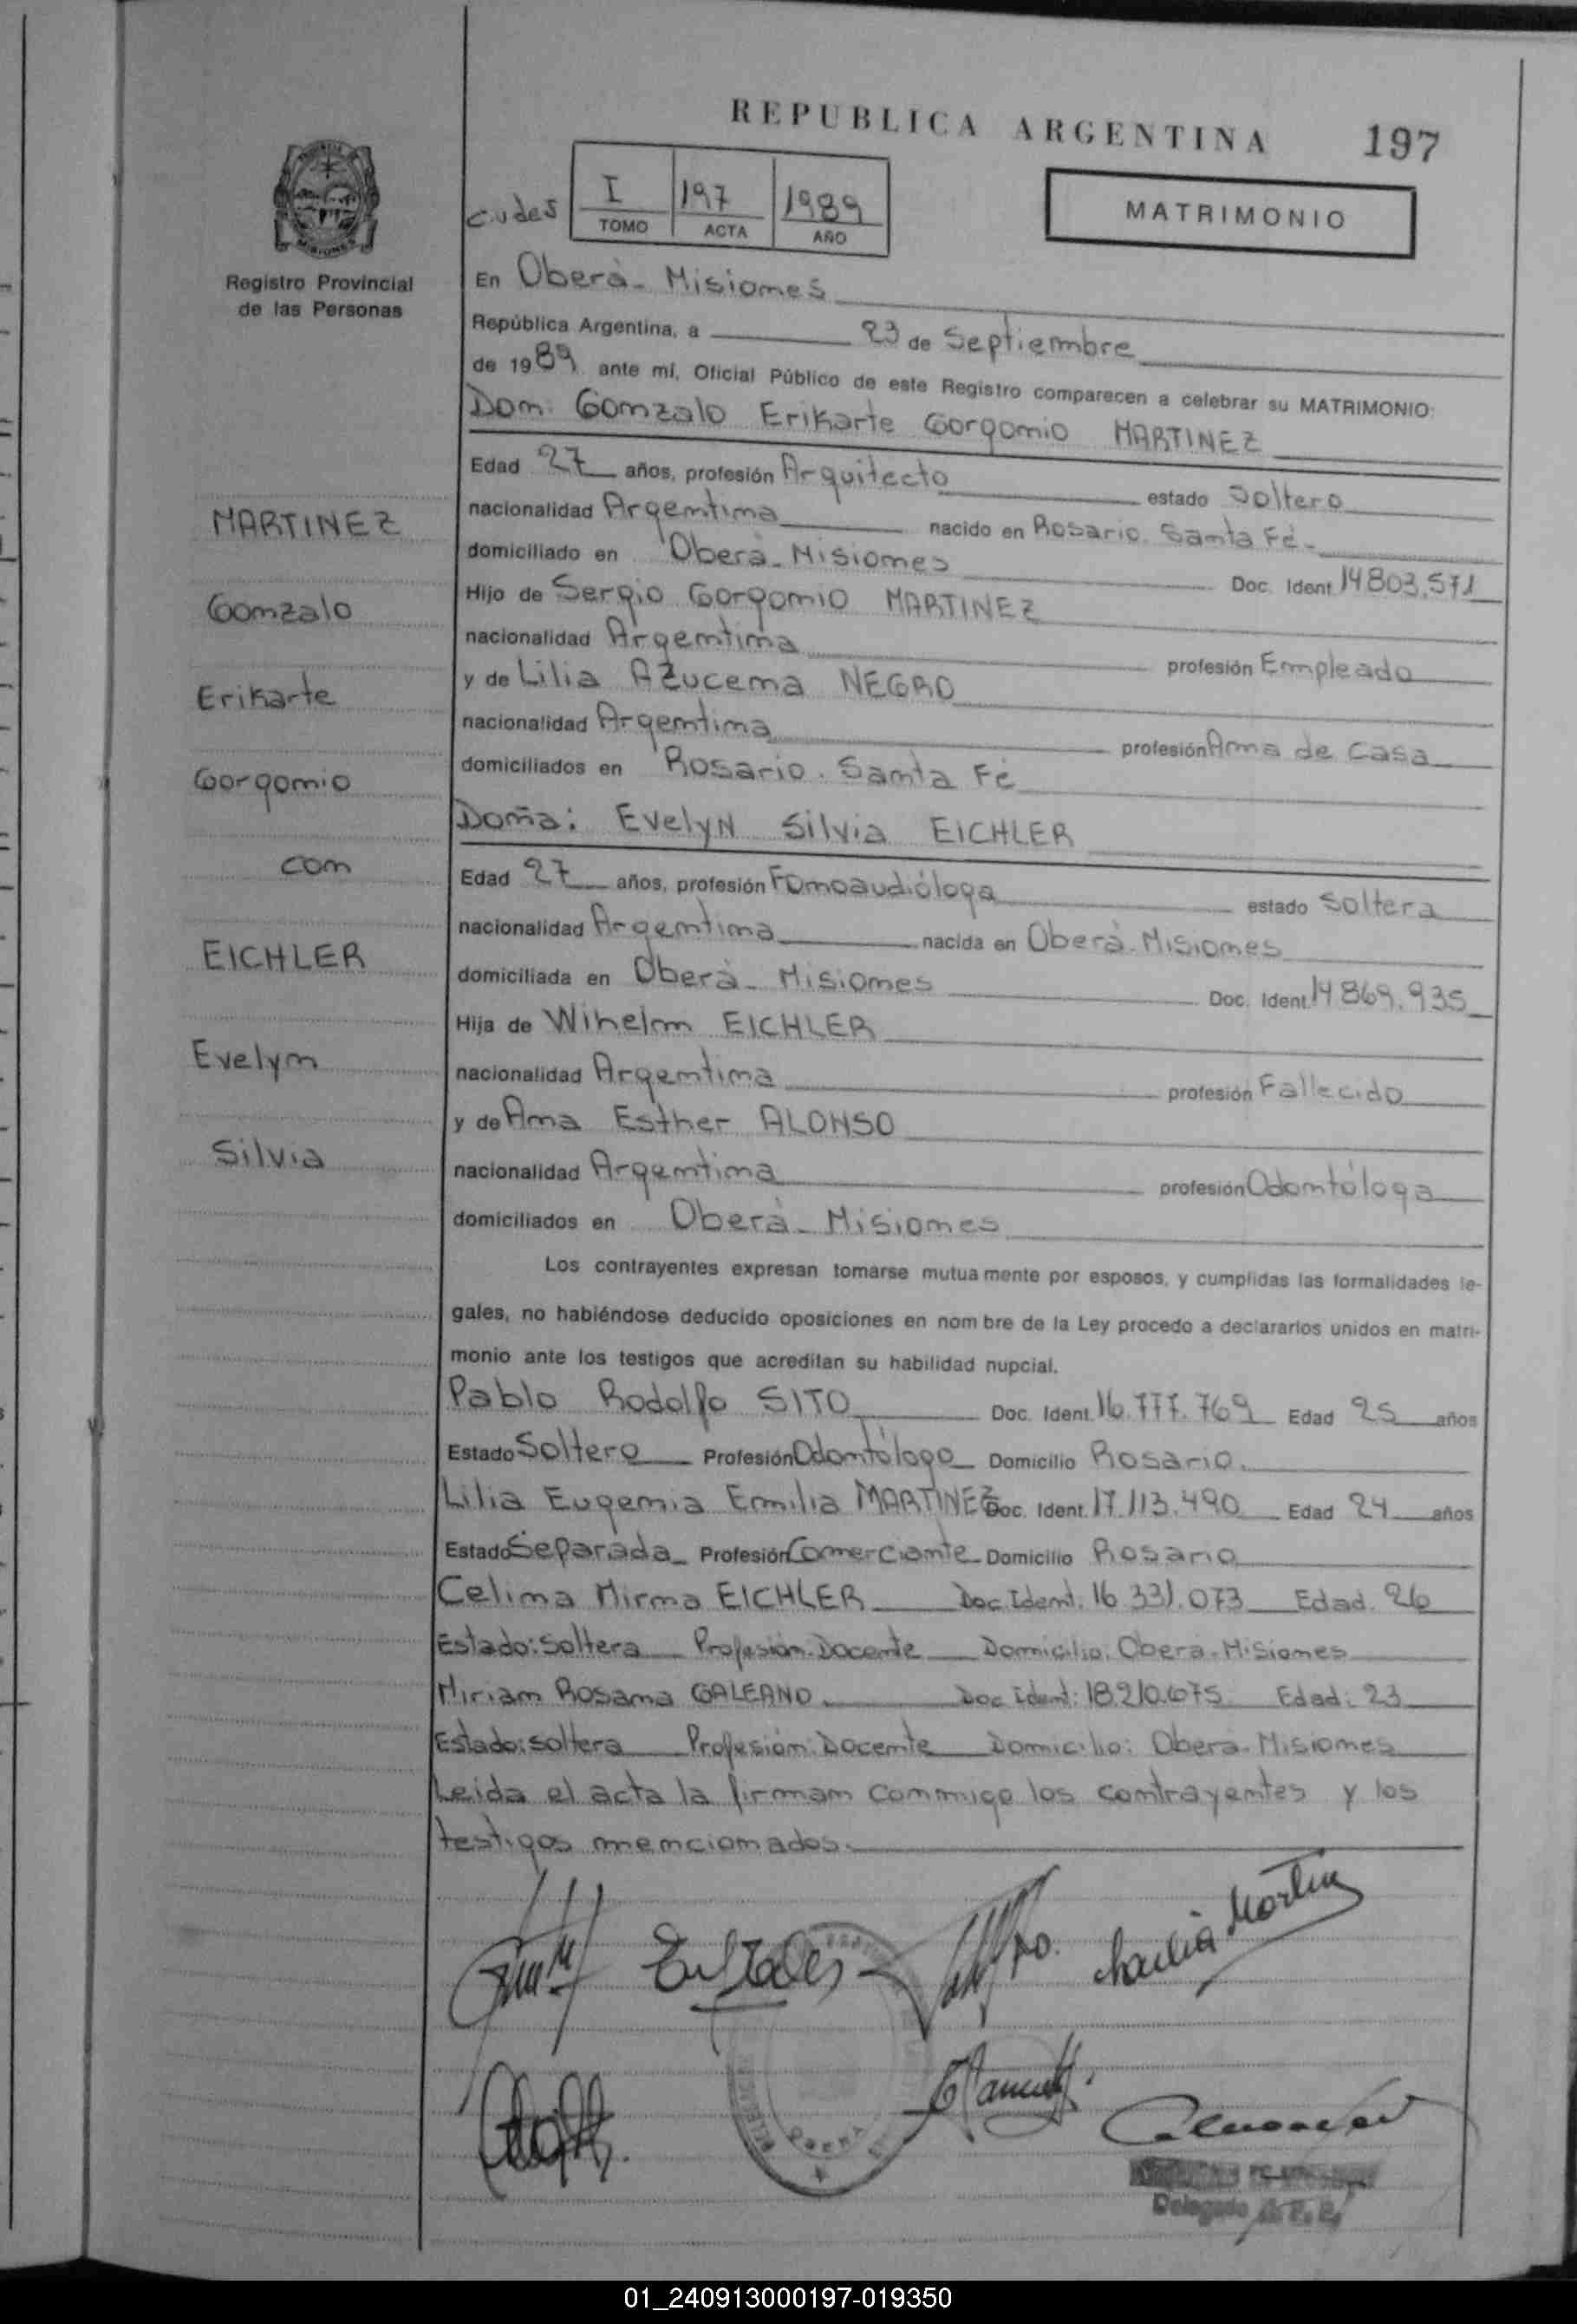 REPUBLICA ARGENTINA 197
I 197 1989
TOMO ACTA AÑO
MATRIMONIO
MISIONES
Registro Provincial
de las Personas
En Oberá - Misiones
República Argentina, a 23 de Septiembre
de 1989 ante mí, Oficial Público de este Registro comparecen a celebrar su MATRIMONIO:
Don: Gonzalo Erikarte Gorgonio MARTINEZ
Edad 27 años, profesión Arquitecto estado Soltero
nacionalidad Argentina nacido en Rosario. Santa Fé -
domiciliado en Oberá - Misiones Doc. Ident. 14803.571
Hijo de Sergio Gorgonio MARTINEZ
nacionalidad Argentina profesión Empleado
y de Lilia Azucena NEGRO
nacionalidad Argentina profesión Ama de Casa
domiciliados en Rosario. Santa Fé
Doña: Evelyn Silvia EICHLER
Edad 27 años, profesión Fonoaudióloga estado Soltera
nacionalidad Argentina nacida en Oberá - Misiones
domiciliada en Oberá - Misiones Doc. Ident. 14869.935
Hija de Wihelm EICHLER
nacionalidad Argentina profesión Fallecido
y de Ana Esther ALONSO
nacionalidad Argentina profesión Odontóloga
domiciliados en Oberá - Misiones
MARTINEZ
Gonzalo
Erikarte
Gorgonio
con
EICHLER
Evelyn
Silvia
Los contrayentes expresan tomarse mutua mente por esposos, y cumplidas las formalidades le-
gales, no habiéndose deducido oposiciones en nom bre de la Ley procedo a declararlos unidos en matri-
monio ante los testigos que acreditan su habilidad nupcial.
Pablo Rodolfo SITO Doc. Ident. 16.777.769 Edad 25 años
Estado Soltero Profesión Odontólogo Domicilio Rosario.
Lilia Eugenia Emilia MARTINEZ Doc. Ident. 17.113.490 Edad 24 años
Estado Separada Profesión Comerciante Domicilio Rosario
Celina Mirna EICHLER Doc. Ident. 16 331.073 Edad. 26
Estado: Soltera Profesión. Docente Domicilio: Oberá - Misiones
Miriam Rosana GALEANO. Doc Ident: 18.210.675 Edad: 23
Estado: Soltera Profesión: Docente Domicilio: Oberá - Misiones
Leida el acta la firman conmigo los contrayentes y los
testigos mencionados.
OBERA
Delegado
01_240913000197-019350